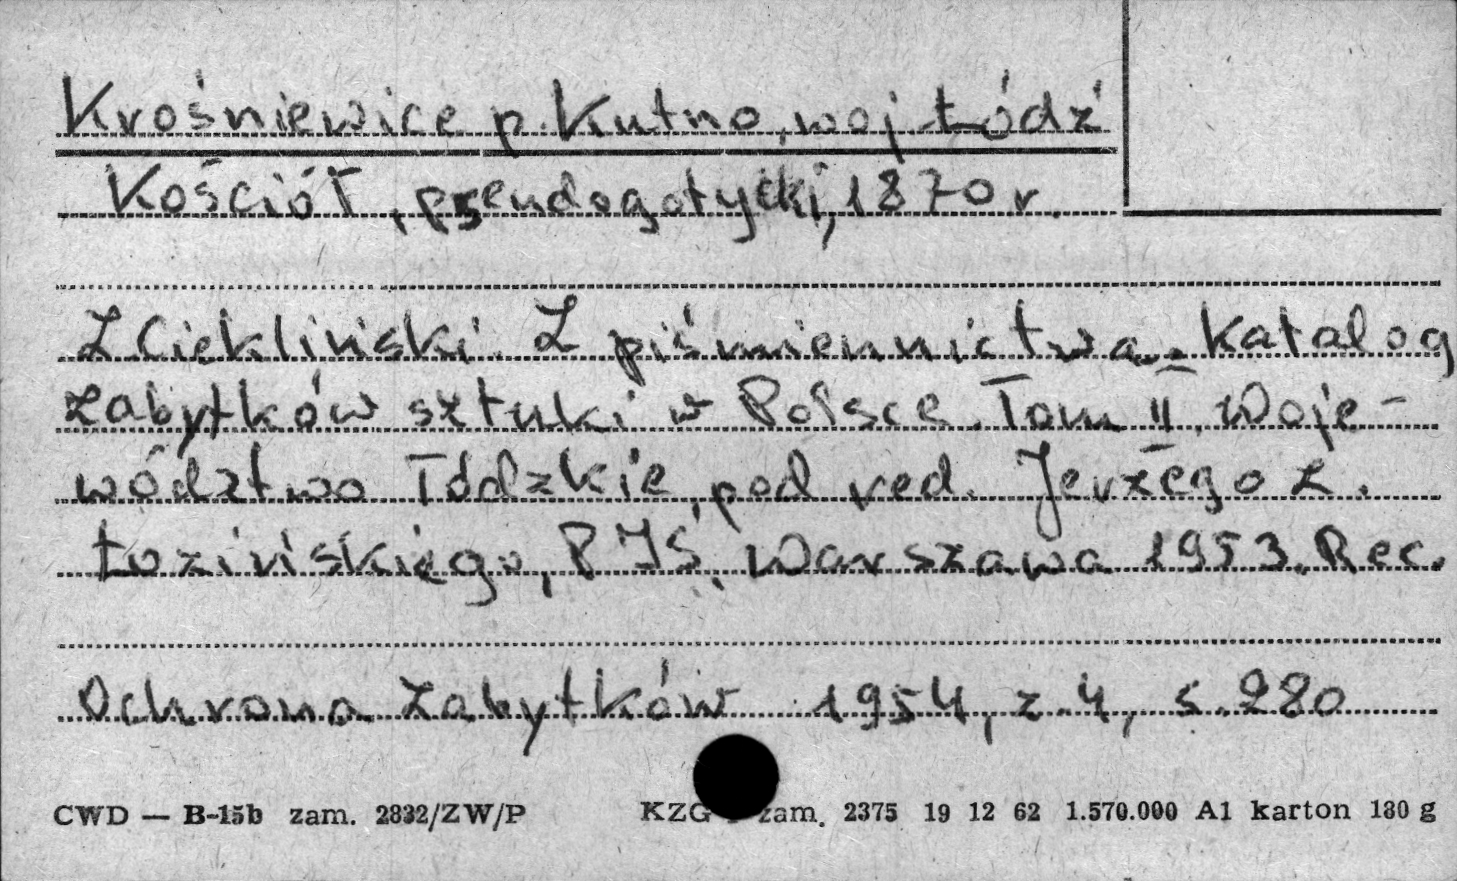 Krośniewice p. Kutno, woj Łódź
Kościół, pseudogotycki, 1870 r.
Z Ciekliński. Z piśmiennictwa. Katalog
zabytków sztuki w Polsce. Tom II. Woje-
wództwo łódzkie, pod red. Jerzego Z.
Łozińskiego, PIS, Warszawa 1953. Rec.
Ochrona Zabytków 1954, z. 4, s. 280
CWD — B-15b zam. 2832/ZW/P KZG zam. 2375 19 12 62 1.570.000 A1 karton 180 g